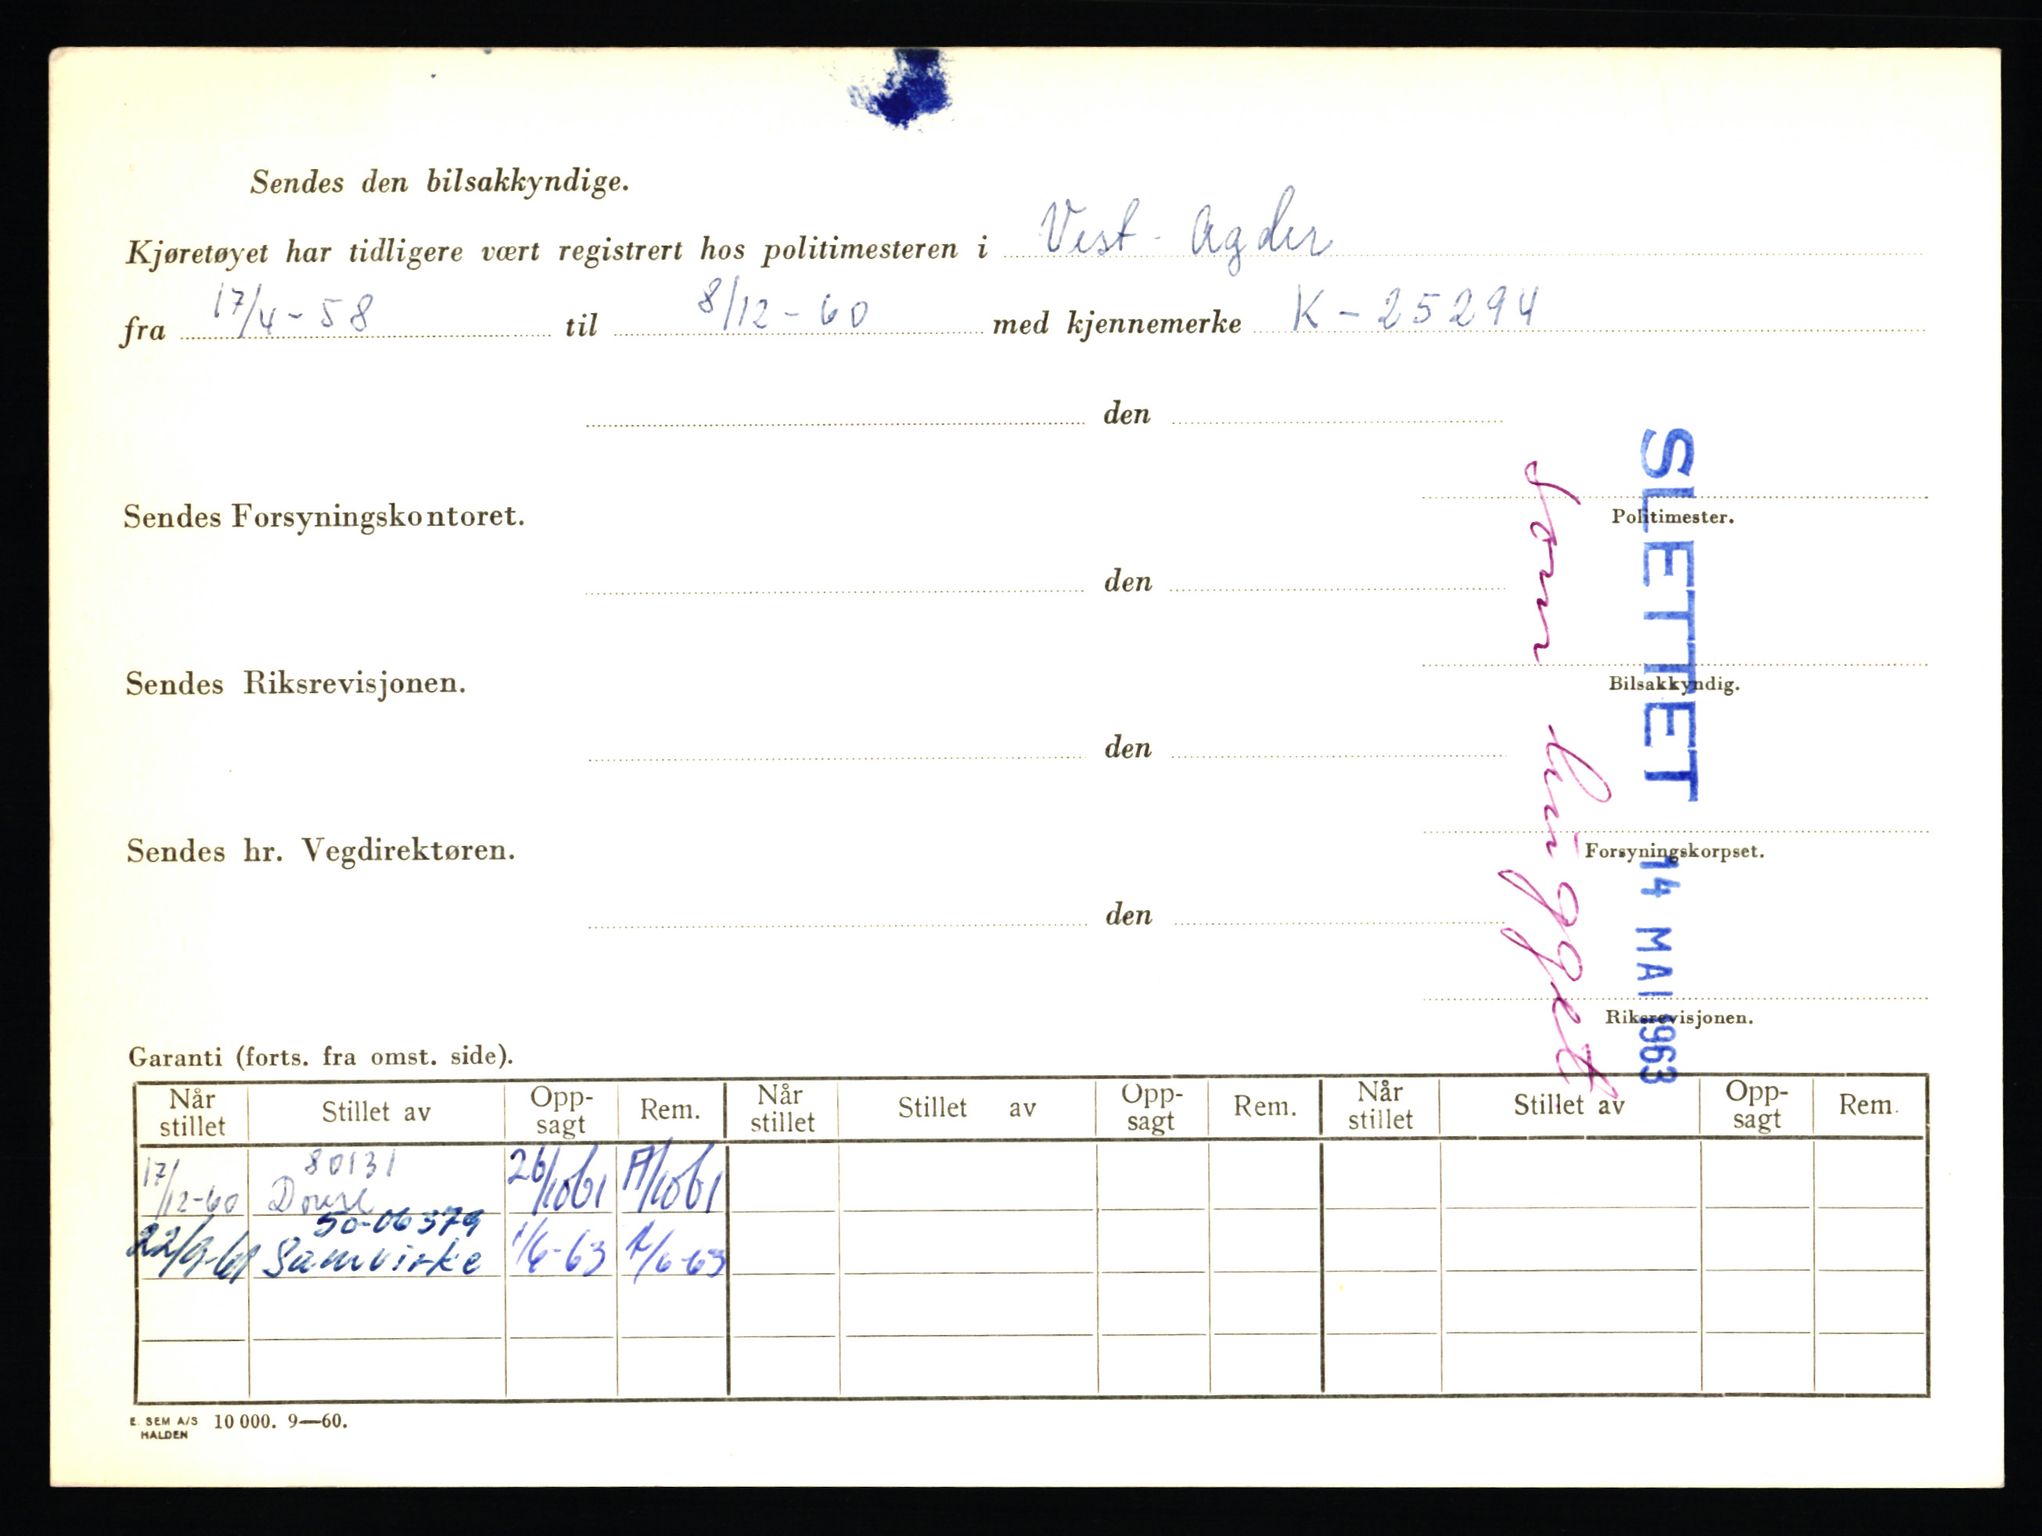 Sendes den bilsakkyndige.
Kjøretøyet har tidligere vært registrert hos politimesteren i Vest-Agder
fra 17/4-58 til 8/12-60 med kjennemerke K-25294
den
Politimester.
Sendes Forsyningskontoret.
den
Bilsakkyndig.
Sendes Riksrevisjonen.
den
Forsyningskorpset.
Sendes hr. Vegdirektøren.
den
Riksrevisjonen.
SLETTET 14 MAI 1963
som hugget
Garanti (forts. fra omst. side).
Når stillet Stillet av Opp- sagt Rem. Når stillet Stillet av Opp- sagt Rem. Når stillet Stillet av Opp- sagt Rem.
17/12-60 80131 26/10 61 /10 61
50-06379
22/9-61 Samvirke 1/6-63 /6-63
E. SEM A/S HALDEN 10 000. 9—60.